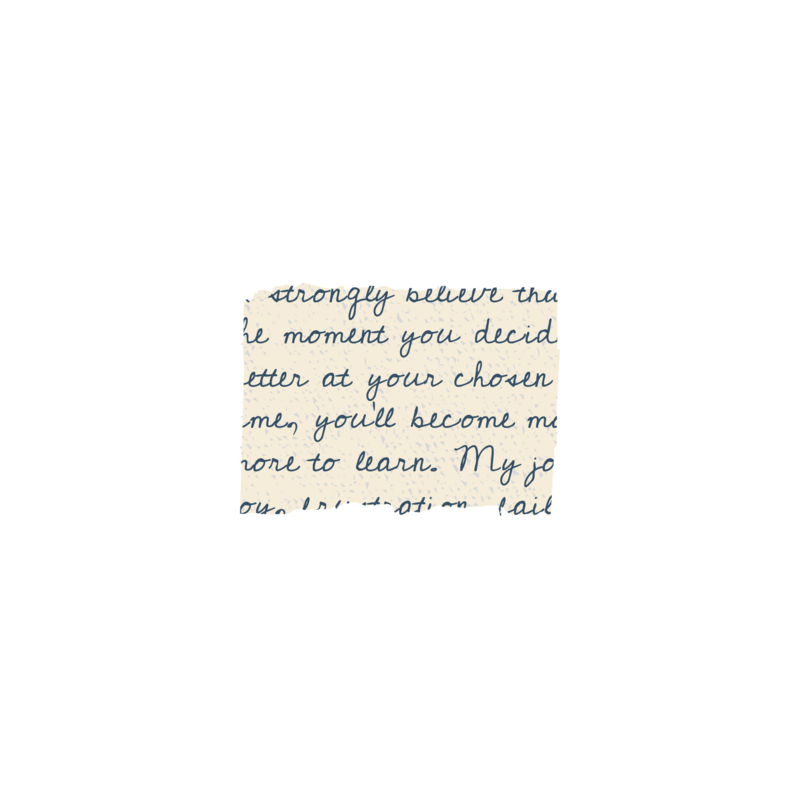 strongly believe tha
he moment you decid
etter at your chosen
me, you'll become mo
nore to learn. My jo
oy, frustration, fail